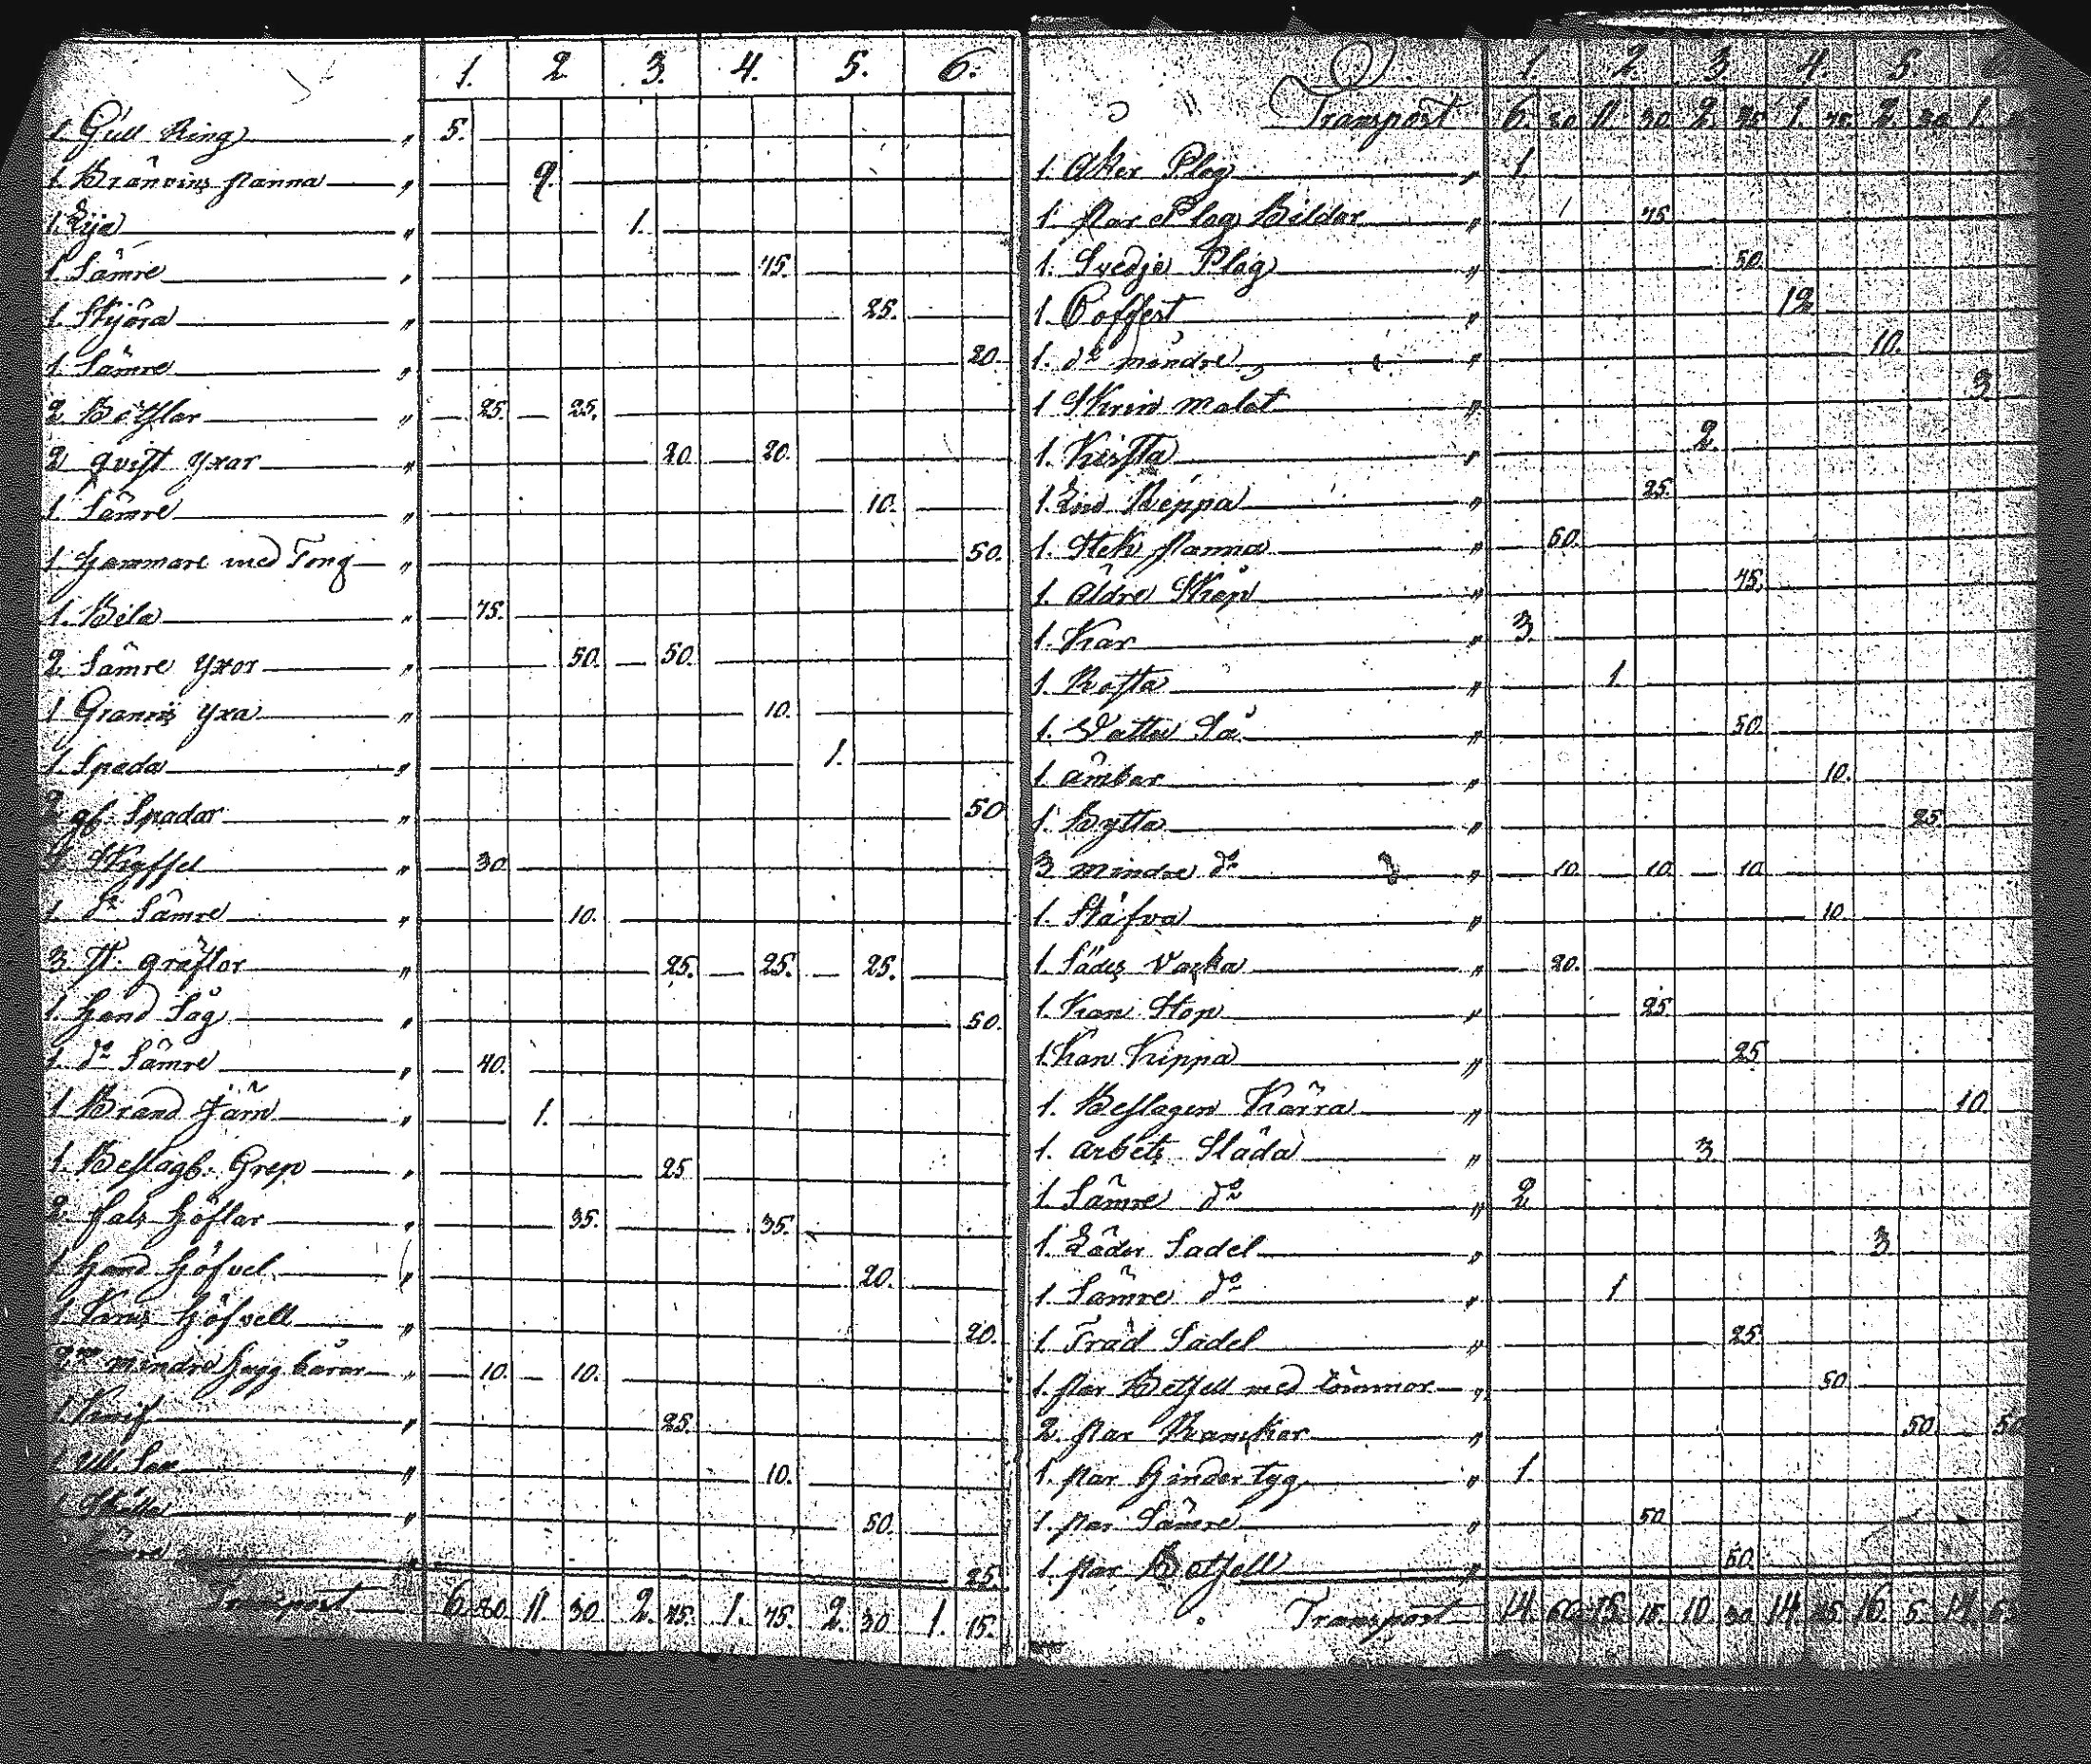 1. 2 3. 4. 5. 6.
1. Gull Ring " 5.
1. Bränvins panna " 9.
1. Lija " 1.
1. Sämre " 75.
1. Skjöra " 25.
1. Sämre " 20.
2 Bötflor " 25. 25.
2 qvist yxar " 20 20.
1. Sämre " 10.
1. Hammare med Tong " 50.
1. Bila " 75.
2 Sämre yxor " 50. 50.
1 yxa " 10.
1. Spada " 1.
2 gb. Spadar " 50
Skyffel " 30.
1. do Sämre " 10.
3. gräflor " 25. 25. 25.
1. Hand Såg " 50.
1. do Sämre " 40.
1 Brand Järn " 1.
1. Beslagb. Grep " 25
2. Hals Höflar " 35. 35.
1 Hand Höfvel " 20.
1 Höfvell " 20.
2 mindre Hugg " 10. 10.
1 Knif " 25.
1 Ull Sax " 10.
1 " 50.
" 25.
Transport 6. 80. 11 30 2. 45. 1. 75. 2. 30 1. 15.
1. 2. 3. 4. 5.
Transport 6. 11 30. 2. 1. 2. 1.
1. Åker Plog " 1
1. par Plog Bildar " 75
1. Svedje Plog " 50.
1. Coffert " 12
1. do mindre " 10.
1 Skrin malat " 3
1. Kista " 2.
1. Lin Reppa " 25.
1. Stek panna " 60.
1. äldre Skåp " 75.
1. Kar " 3.
1. " 1.
1. Vatten Så " 50.
1 ämbar " 10.
1. Bytta " 25
3 mindre do " 10. 10 10
1. Stäfva " 10
1. Sädes Vacka " 20.
1. Kan Stop " 25.
1. Kan Kippa " 25
1. Beslagen Kärra " 10
1. arbets Släda " 3.
1 Sämre do " 2
1. Läder Sadel " 3
1. Sämre do " 1
1 Träd Sadel " 25.
1. par Betsell med tömmar " 50.
2. par " 50. 50
1. par Hinder tyg " 1.
1. par Sämre " 50
1. par Betsell " 50.
Transport 14. 60. 15. 15. 10. 30 14. 16 5. 14